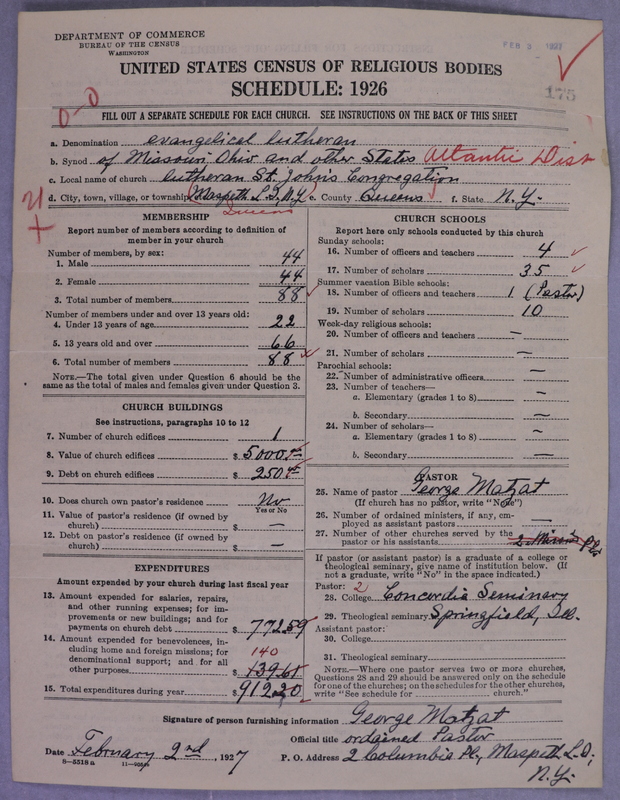 DEPARTMENT OF COMMERCE
BUREAU OF THE CENSUS
WASHINGTON
FEB 3 1927
175
UNITED STATES CENSUS OF RELIGIOUS BODIES
SCHEDULE: 1926
0-0
FILL OUT A SEPARATE SCHEDULE FOR EACH CHURCH. SEE INSTRUCTIONS ON THE BACK OF THIS SHEET
a. Denomination evangelical lutheran
b. Synod of Missouri, Ohio and other States Atlantic Dist
c. Local name of church lutheran St. John's Congregation
d. City, town, village, or township (Maspeth L.I., N.Y.) e. County Queens f. State N.Y.
Queens
MEMBERSHIP
Report number of members according to definition of
member in your church
Number of members, by sex:
1. Male 44
2. Female 44
3. Total number of members 88
Number of members under and over 13 years old:
4. Under 13 years of age 22
5. 13 years old and over 66
6. Total number of members 88
NOTE.—The total given under Question 6 should be
same as the total of males and females given under Question 3.
CHURCH BUILDINGS
See instructions, paragraphs 10 to 12
7. Number of church edifices 1
8. Value of church edifices $ 5000
9. Debt on church edifices $ 250
10. Does church own pastor's residence No
Yes or No
11. Value of pastor's residence (if owned by
church) $ —
12. Debt on pastor's residence (if owned by
church) $ —
EXPENDITURES
Amount expended by your church during last fiscal year
13. Amount expended for salaries, repairs,
and other running expenses; for im-
provements or new buildings; and for
payments on church debt $ 772.59
14. Amount expended for benevolences, in-
cluding home and foreign missions; for
denominational support; and for all
other purposes $ 139.61
140
15. Total expenditures during year $ 912.20
CHURCH SCHOOLS
Report here only schools conducted by this church
Sunday schools:
16. Number of officers and teachers 4
17. Number of scholars 35
Summer vacation Bible schools:
18. Number of officers and teachers 1 (Pastor)
19. Number of scholars 10
Week-day religious schools:
20. Number of officers and teachers —
21. Number of scholars —
Parochial schools:
22. Number of administrative officers —
23. Number of teachers—
a. Elementary (grades 1 to 8) —
b. Secondary —
24. Number of scholars—
a. Elementary (grades 1 to 8) —
b. Secondary —
PASTOR
25. Name of pastor George Matzat
(If church has no pastor, write "None")
26. Number of ordained ministers, if any, em-
ployed as assistant pastors —
27. Number of other churches served by the
pastor or his assistants 2 Mission Pls
If pastor (or assistant pastor) is a graduate of a college or
theological seminary, give name of institution below. (If
not a graduate, write "No" in the space indicated.)
Pastor: 2
28. College Concordia Seminary
29. Theological seminary Springfield, Ill.
Assistant pastor:
30. College
31. Theological seminary
NOTE.—Where one pastor serves two or more churches,
Questions 28 and 29 should be answered only on the schedule
for one of the churches; on the schedules for the other churches,
write "See schedule for church."
Signature of person furnishing information George Matzat
Official title ordained Pastor
Date February 2nd, 1927 P. O. Address 2 Columbia Pl., Maspeth L.I.,
N.Y.
8—5518a